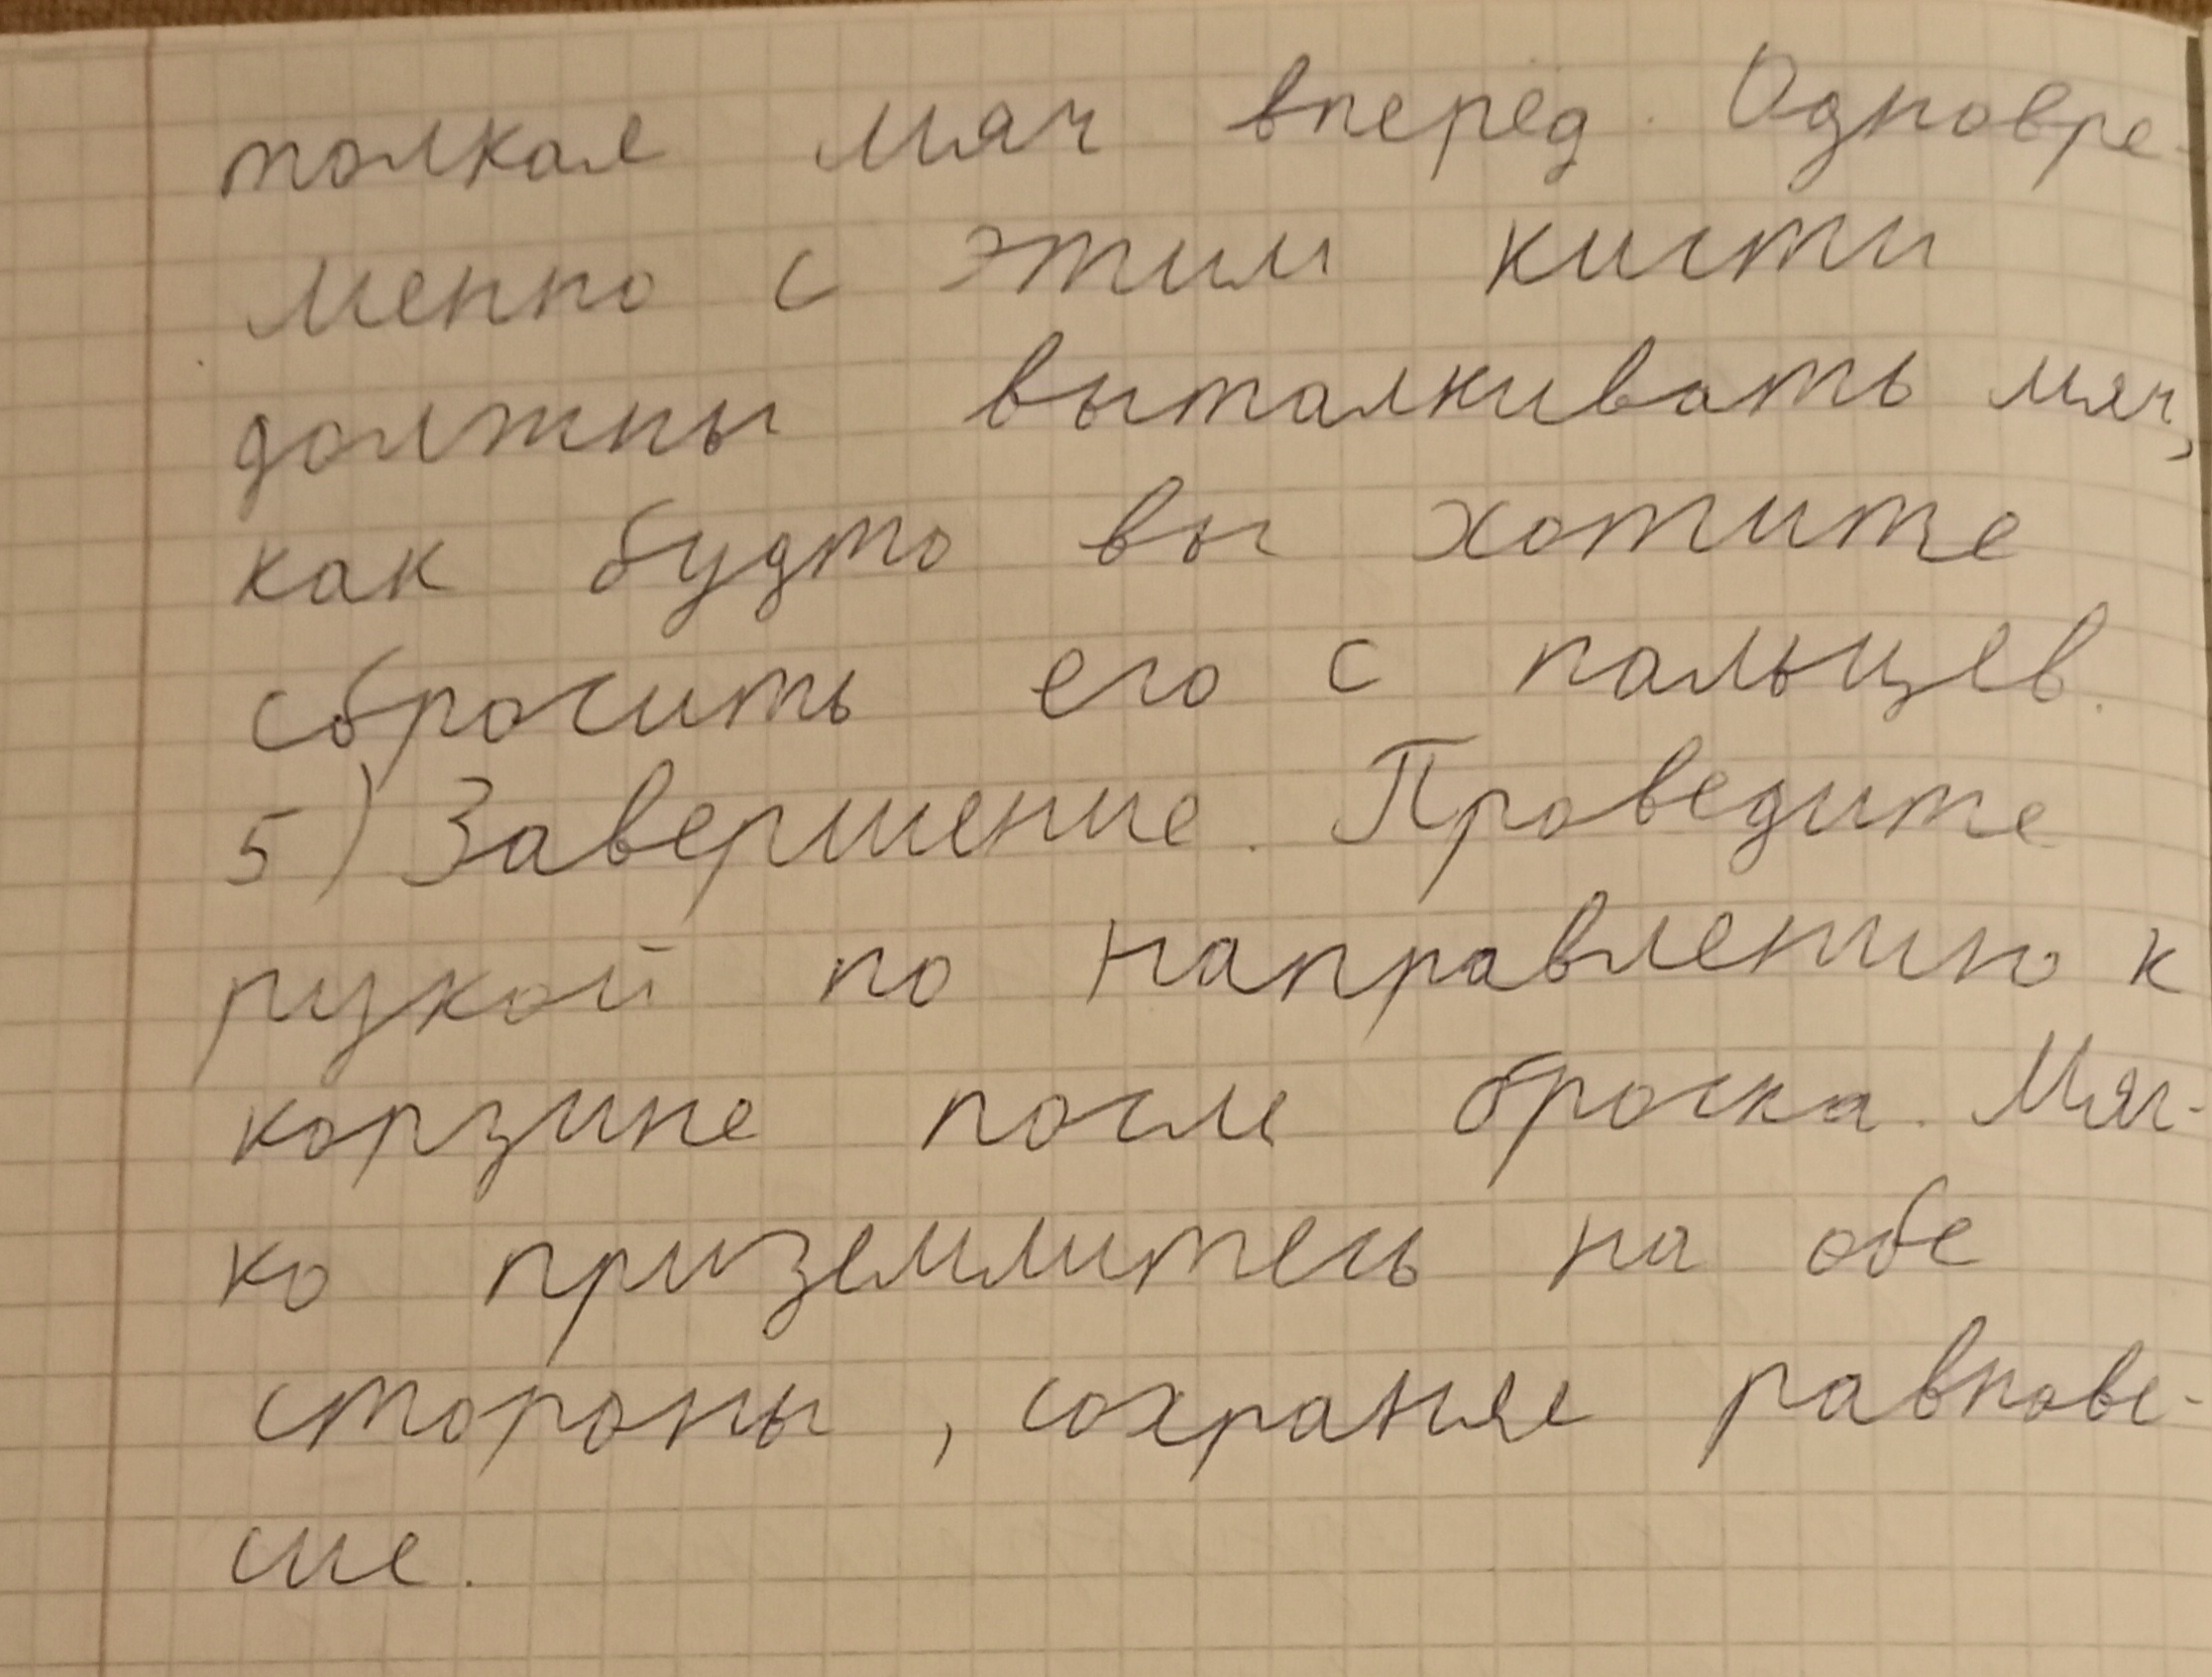 толкая мяч вперёд. Одновре-
менно с этим кисти
должны выталкивать мяч,
как будто вы хотите
сбросить его с пальцев.
5) Завершение. Проведите
рукой по направлению к
корзине после броска. Мяг-
ко приземлитесь на обе
стороны, сохраняя равнове-
сие.